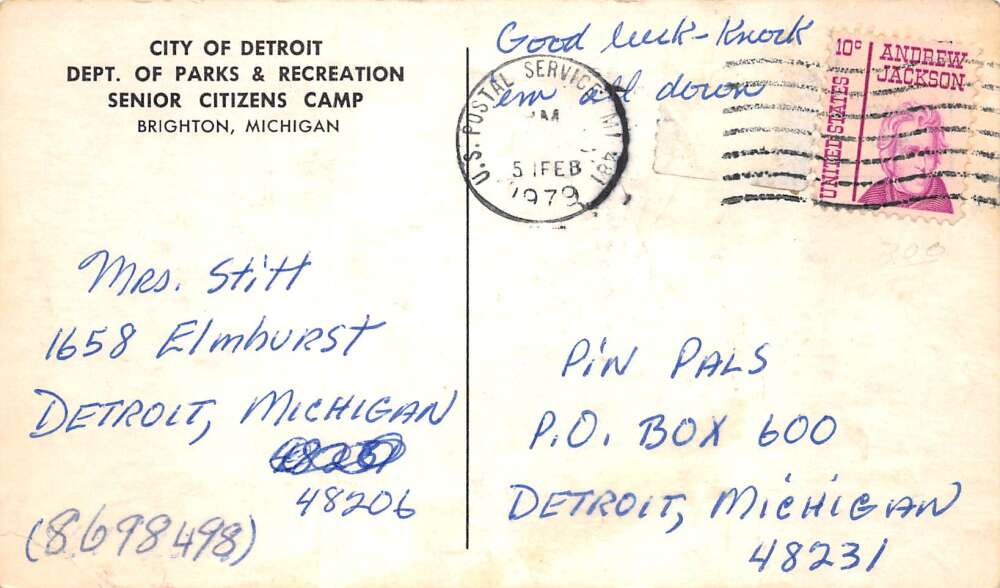 CITY OF DETROIT
DEPT. OF PARKS & RECREATION
SENIOR CITIZENS CAMP
BRIGHTON, MICHIGAN
Good luck-Knock
em all down
U.S. POSTAL SERVICE MI 481
PM
5 1FEB
1979
10c
ANDREW
JACKSON
UNITED STATES
200
Mrs. Stitt
1658 Elmhurst
DETROIT, MICHIGAN
48231
48206
(8698498)
PiN PALS
P.O. BOX 600
DETROIT, MICHIGAN
48231